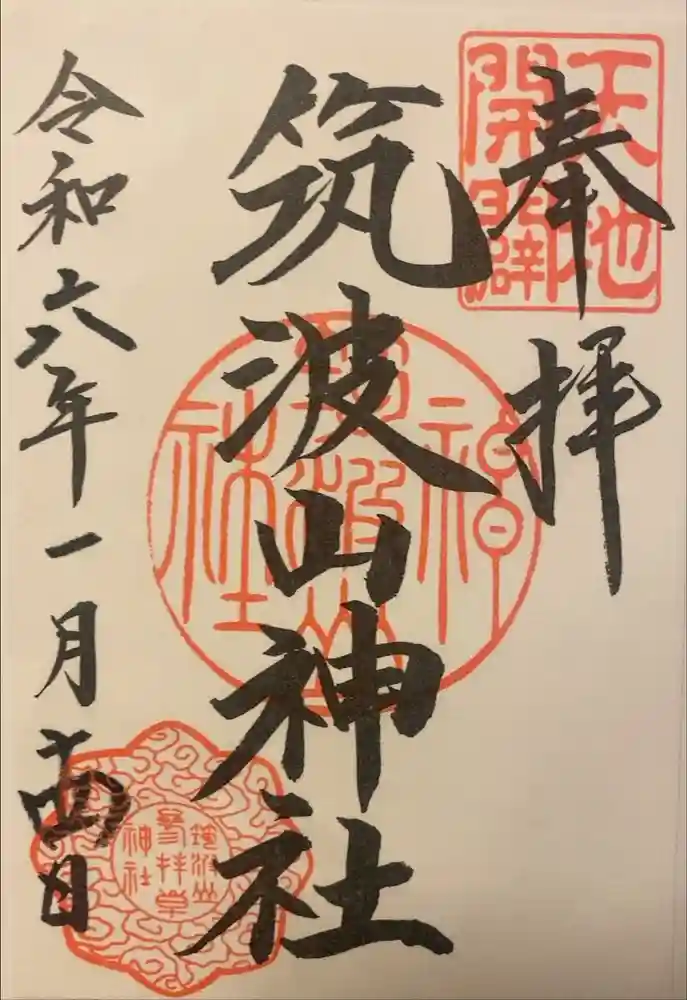 天地
開闢
奉拝
筑波山神社
神
筑波山
社
令和六年一月十四日
筑波山
参拝章
神社